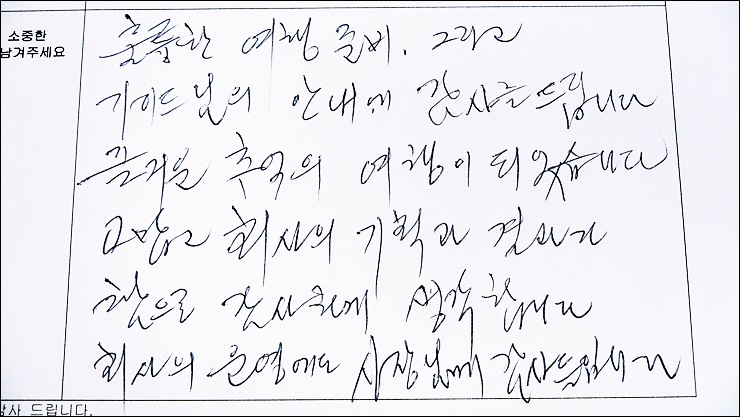 소중한
남겨주세요
훌륭한 여행 준비. 그리고
가이드님의 안내에 감사를 드립니다
즐거운 추억의 여행이 되었습니다
회사의 기획과 결과가
참으로 감사하게 생각합니다
회사의 운영에도 사장님께 감사드립니다
감사 드립니다.